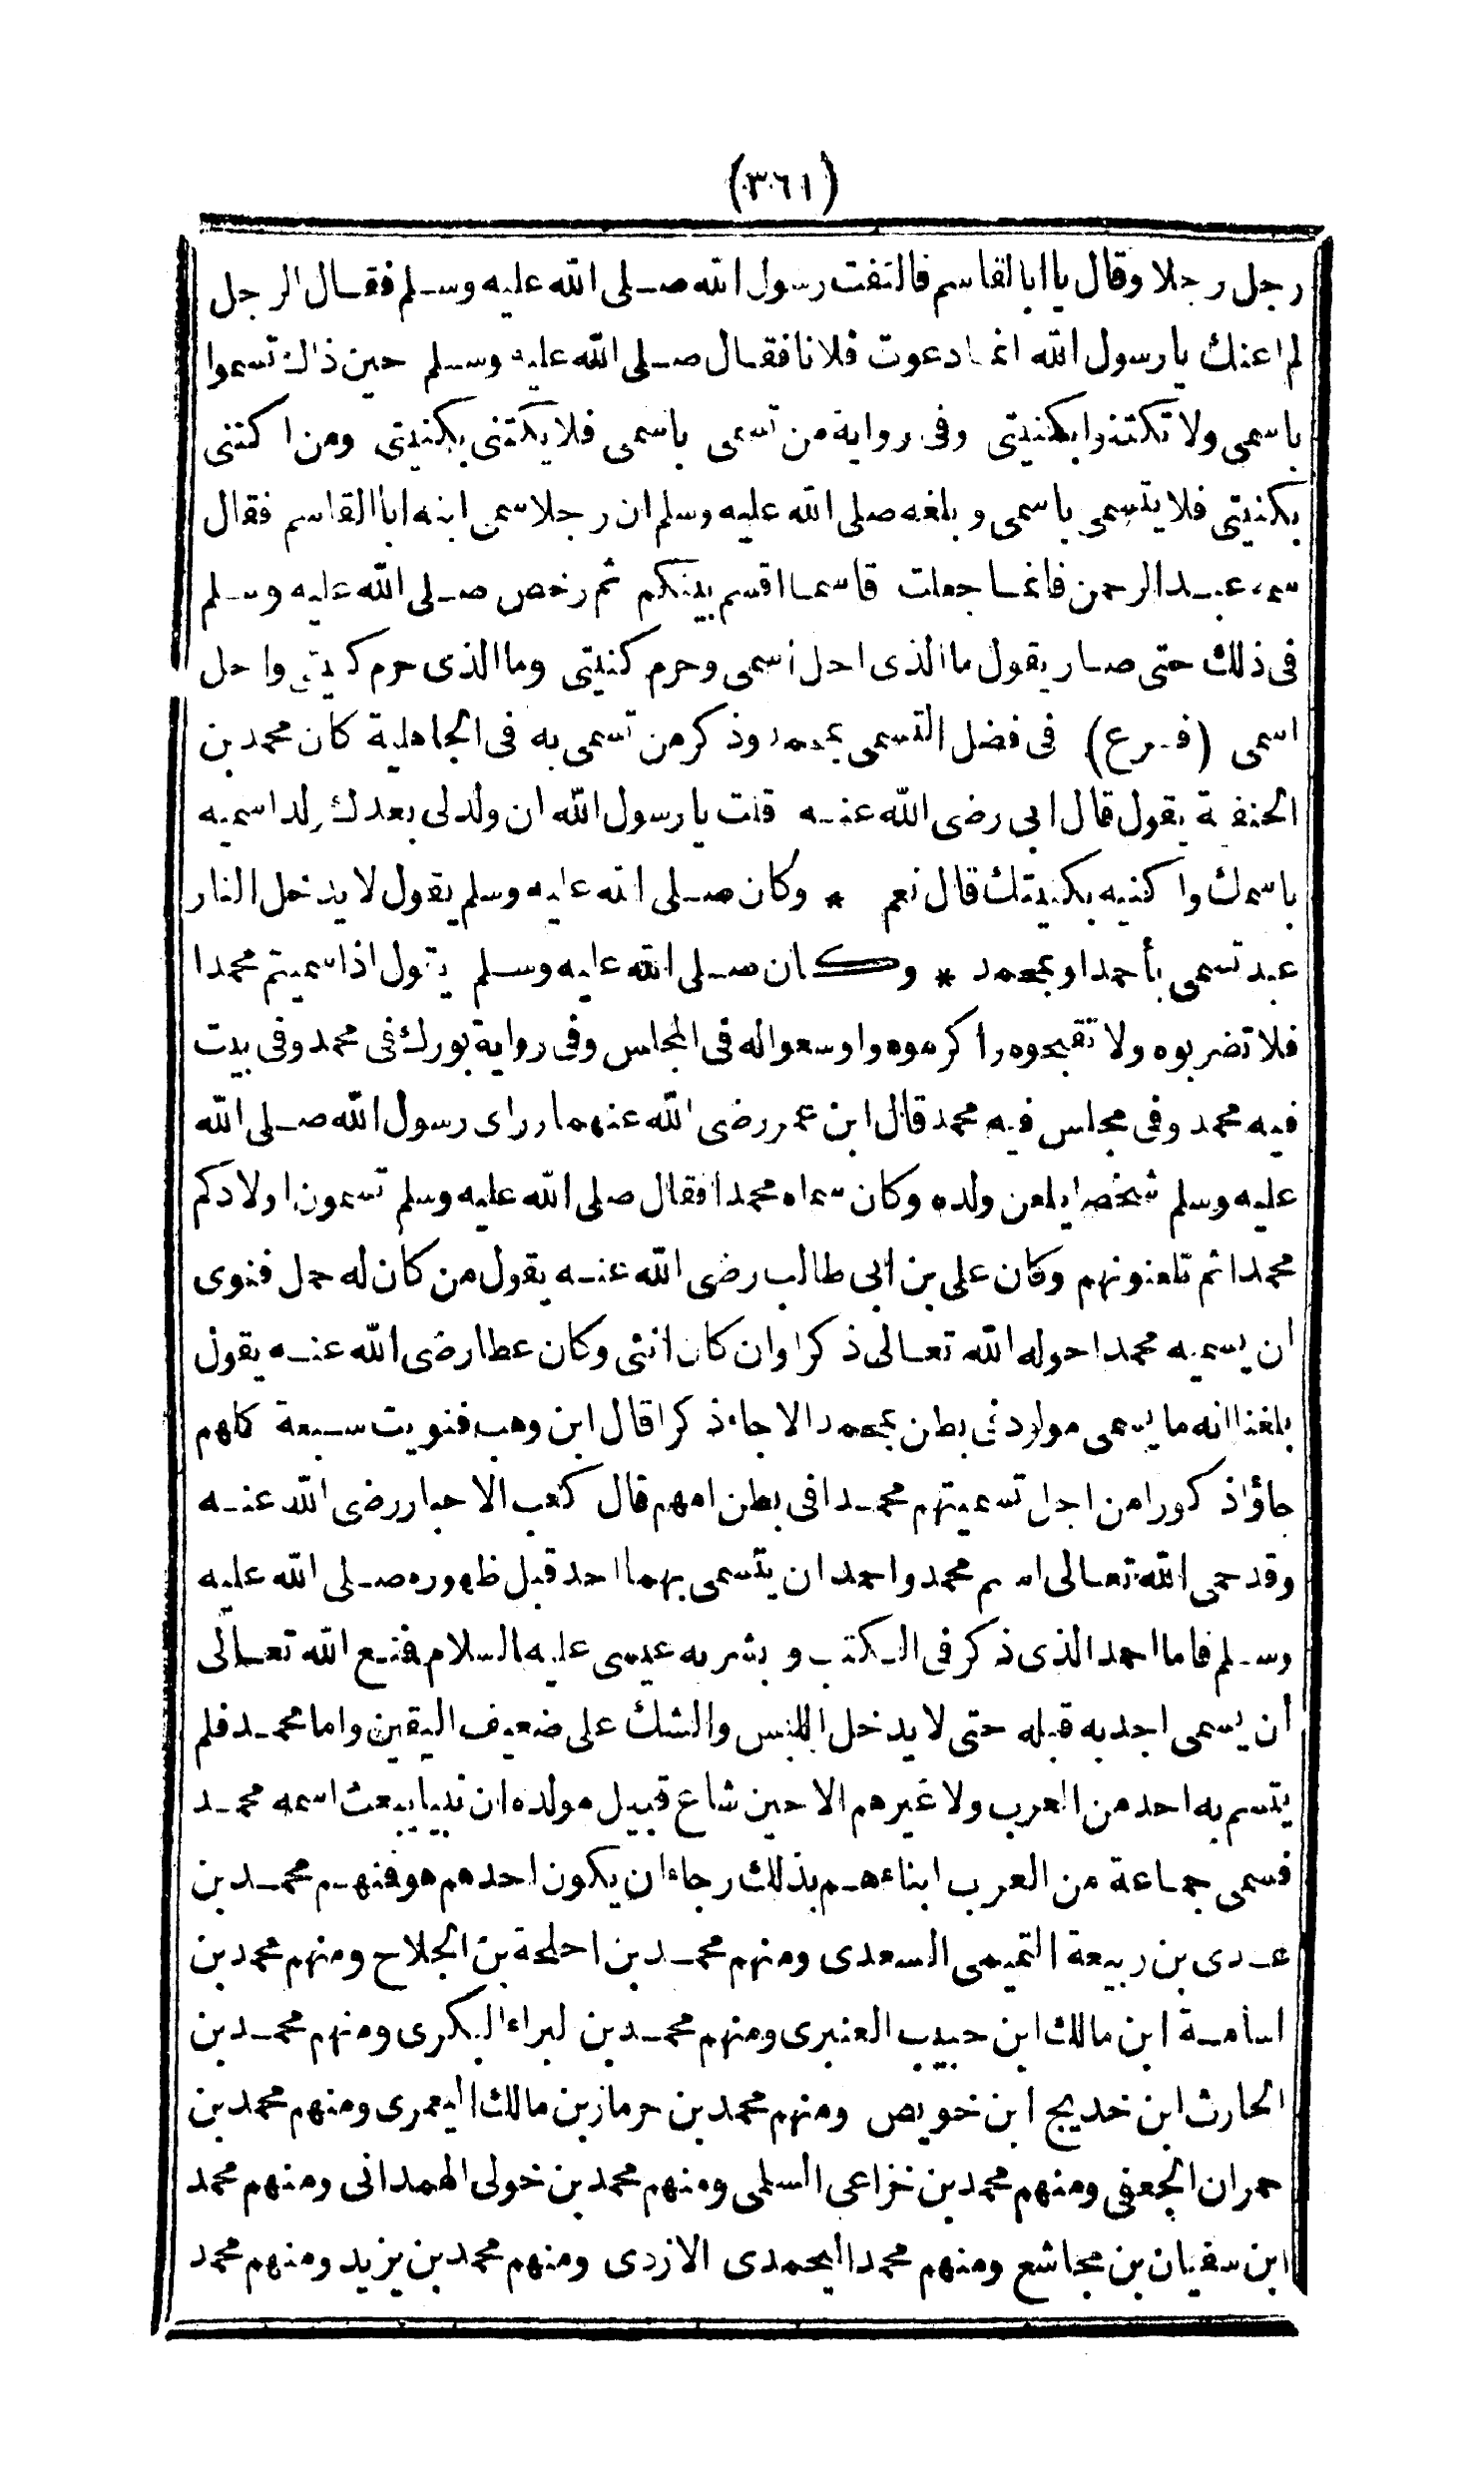 (٣٦١)
رجل رجلا وقال يا ابا القاسم فالتفت رسول الله صلى الله عليه وسلم فقال الرجل
لم اعنك يا رسول الله انما دعوت فلانا فقال صلى الله عليه وسلم حين ذاك تسموا
باسمى ولا تكتنوا بكنيتى وفى رواية من تسمى باسمى فلا يكتنى بكنيتى ومن اكتنى
بكنيتى فلا يتسمى باسمى وبلغه صلى الله عليه وسلم ان رجلا سمى ابنه ابا القاسم فقال
سمه عبد الرحمن فانما جعلت قاسما اقسم بينكم ثم رخص صلى الله عليه وسلم
فى ذلك حتى صار يقول ما الذى احل اسمى وحرم كنيتى وما الذى حرم كنيتى واحل
اسمى (فرع) فى فضل التسمى بمحمد وذكر من تسمى به فى الجاهلية كان محمد بن
الحنفية يقول قال ابى رضى الله عنه قلت يا رسول الله ان ولد لى بعدك ولد اسميه
باسمك واكنيه بكنيتك قال نعم * وكان صلى الله عليه وسلم يقول لا يدخل النار
عبد تسمى بأحمد او بمحمد * وكان صلى الله عليه وسلم يقول اذا سميتم محمدا
فلا تضربوه ولا تقبحوه واكرموه واوسعوا له فى المجلس وفى رواية بورك فى محمد وفى بيت
فيه محمد وفى مجلس فيه محمد قال ابن عمر رضى الله عنهما وراى رسول الله صلى الله
عليه وسلم شخصا يلعن ولده وكان سماه محمدا فقال صلى الله عليه وسلم تسمون اولادكم
محمدا ثم تلعنونهم وكان على بن ابى طالب رضى الله عنه يقول من كان له حمل فنوى
ان يسميه محمدا حوله الله تعالى ذكرا وان كان انثى وكان عطا رضى الله عنه يقول
بلغنا انه ما يسمى مولود فى بطن بمحمد الا جاء ذكرا قال ابن وهب فنويت سبعة كلهم
جاؤا ذكورا من اجل تسميتهم محمدا فى بطن امهم قال كعب الاحبار رضى الله عنه
وقد حمى الله تعالى اسم محمد واحمد ان يتسمى بهما احد قبل ظهوره صلى الله عليه
وسلم فاما احمد الذى ذكر فى الكتب وبشر به عيسى عليه السلام فمنع الله تعالى
أن يسمى احد به قبله حتى لا يدخل اللبس والشك على ضعيف اليقين واما محمد فلم
يتسم به احد من العرب ولا غيرهم الا حين شاع قبيل مولده ان نبيا يبعث اسمه محمد
فسمى جماعة من العرب ابناءهم بذلك رجاء ان يكون احدهم هو فمنهم محمد بن
عدى بن ربيعة التميمى السعدى ومنهم محمد بن احلحة بن الجلاح ومنهم محمد بن
اسامة ابن مالك ابن حبيب العنبرى ومنهم محمد بن لبراء البكرى ومنهم محمد بن
الحارث ابن خديج ابن خويص ومنهم محمد بن حرماز بن مالك اليعمرى ومنهم محمد بن
حمران الجعفى ومنهم محمد بن خزاعى السلمى ومنهم محمد بن خولى الهمدانى ومنهم محمد
ابن سفيان بن مجاشع ومنهم محمد اليحمدى الازدى ومنهم محمد بن يزيد ومنهم محمد